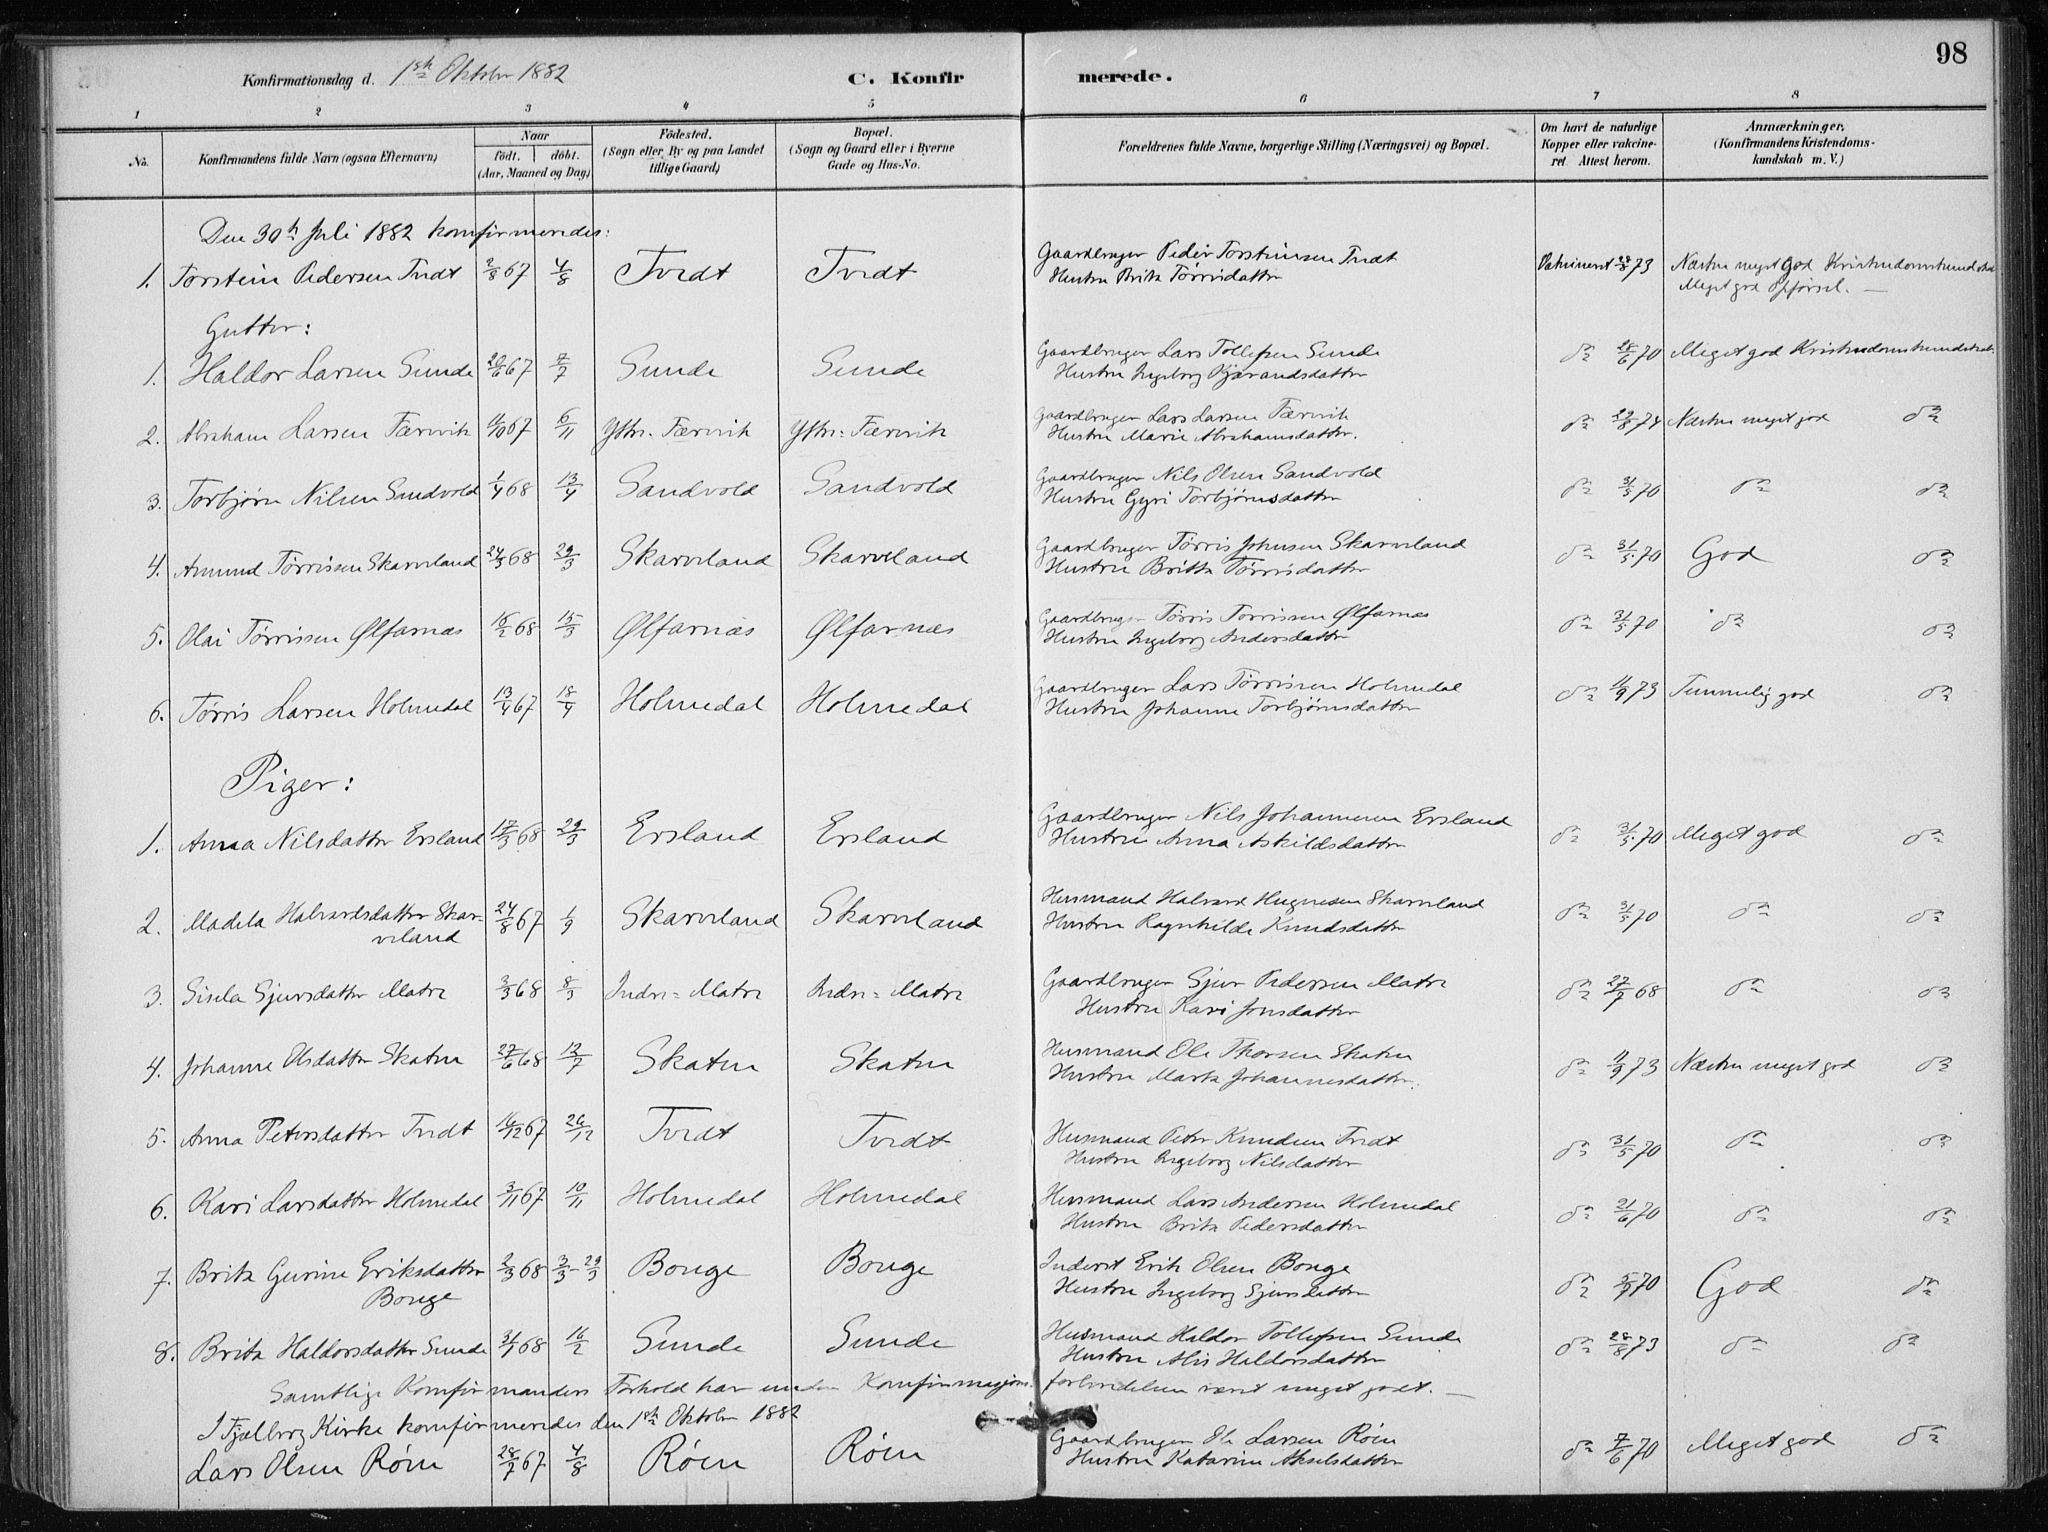 98
Konfirmationsdag d. 1ste Oktober 1882 C. Konfirmerede.
1 2 3 4 5 6 7 8
No. Konfirmandens fulde Navn (ogsaa Efternavn) Naar födt. döbt. (Aar, Maaned og Dag) Födested. (Sogn eller By og paa Landet tillige Gaard) Bopæl. (Sogn og Gaard eller i Byerne Gade og Hus-No. Forældrenes fulde Navne, borgerlige Stilling (Næringsvei) og Bopæl. Om havt de naturlige Kopper eller vakcineret. Attest herom. Anmærkninger. (Konfirmandens Kristendomskundskab m. V.)
Den 30te Juli 1882 konfirmeredes:
1. Torstein Pedersen Tvedt 2/8 67 4/8 Tvedt Tvedt Gaardbruger Peder Torsteinsen Tvedt Vakcineret 28/8 73 Næsten meget god Kristendomskundskab
Hustru Brita Tørrisdatter Meget god Opførsel. —
Gutter:
1. Haldor Larsen Sunde 20/6 67 7/7 Sunde Sunde Gaardbruger Lars Tollefsen Sunde do 28/6 70 Meget god Kristendomskundskab.
Hustru Ingeborg Kjærandsdatter
2. Abraham Larsen Færevik 11/10 67 6/11 Ytre-Færevik Ytre-Færevik Gaardbruger Lars Larsen Færevik do 29/8 74 Næsten meget god do
Hustru Marie Abrahamsdatter.
3. Torbjørn Nilsen Sandvold 1/4 68 13/4 Sandvold Sandvold Gaardbruger Nils Olsen Sandvold do 31/5 70 do do
Hustru Gyri Torbjørnsdatter
4. Amund Tørrissen Skarveland 24/3 68 29/3 Skarveland Skarveland Gaardbruger Tørris Johnsen Skarveland do 31/5 70 God do
Hustru Britta Tørrisdatter
5. Olai Tørrissen Ølfarnæs 16/2 68 15/3 Ølfarnæs Ølfarnæs Gaardbruger Tørris Tørrissen Ølfarnæs do 31/5 70 do do
Hustru Ingeborg Andersdatter
6. Tørris Larsen Holmedal 13/4 67 18/4 Holmedal Holmedal Gaardbruger Lars Tørrissen Holmedal do 11/9 73 Temmelig god do
Hustru Johanne Torbjørnsdatter
Piger:
1. Anna Nilsdatter Ersland 17/3 68 29/3 Ersland Ersland Gaardbruger Nils Johannesen Ersland do 31/5 70 Meget god do
Hustru Anna Askildsdatter
2. Madela Halvardsdatter Skar- 24/8 67 1/9 Skarveland Skarveland Husmand Halvard Hugnesen Skarveland do 31/5 70 do do
veland Hustru Ragnhilde Knudsdatter
3. Sisela Sjursdatter Matre 2/3 68 8/3 Indre-Matre Indre-Matre Gaardbruger Sjur Pedersen Matre do 27/7 68 do do
Hustru Kari Jonsdatter
4. Johanne Olsdatter Skaten 27/6 68 12/7 Skaten Skaten Husmand Ole Thorsen Skaten do 11/9 73 Næsten meget god do
Hustru Marta Johannesdatter.
5. Anna Petersdatter Tvedt 16/12 67 26/12 Tvedt Tvedt Husmand Peter Knudsen Tvedt do 31/5 70 do do
Hustru Ingeborg Nilsdatter
6. Kari Larsdatter Holmedal 3/11 67 10/11 Holmedal Holmedal Husmand Lars Andersen Holmedal do 21/6 70 do do
Hustru Brita Pedersdatter
7. Brita Gurine Eriksdatter 2/3 68 3/3-29/3 Bouge Bouge Inderst Erik Olsen Bouge do 5/7 70 God do
Bouge Hustru Ingeborg Sjursdatter
8. Brita Haldorsdatter Sunde 31/1 68 16/2 Sunde Sunde Husmand Haldor Tollefsen Sunde do 28/8 73 do do
Hustru Alis Haldorsdatter
Samtlige Konfirmanders Forhold har under Konfirmasjons-forberedelsen været meget godt. —
I Fjelberg Kirke konfirmeredes den 1ste Oktober 1882
Lars Olsen Røen 28/7 67 4/8 Røen Røen Gaardbruger Ole Larsen Røen do 7/6 70 Meget god do
Hustru Katarine Akselsdatter